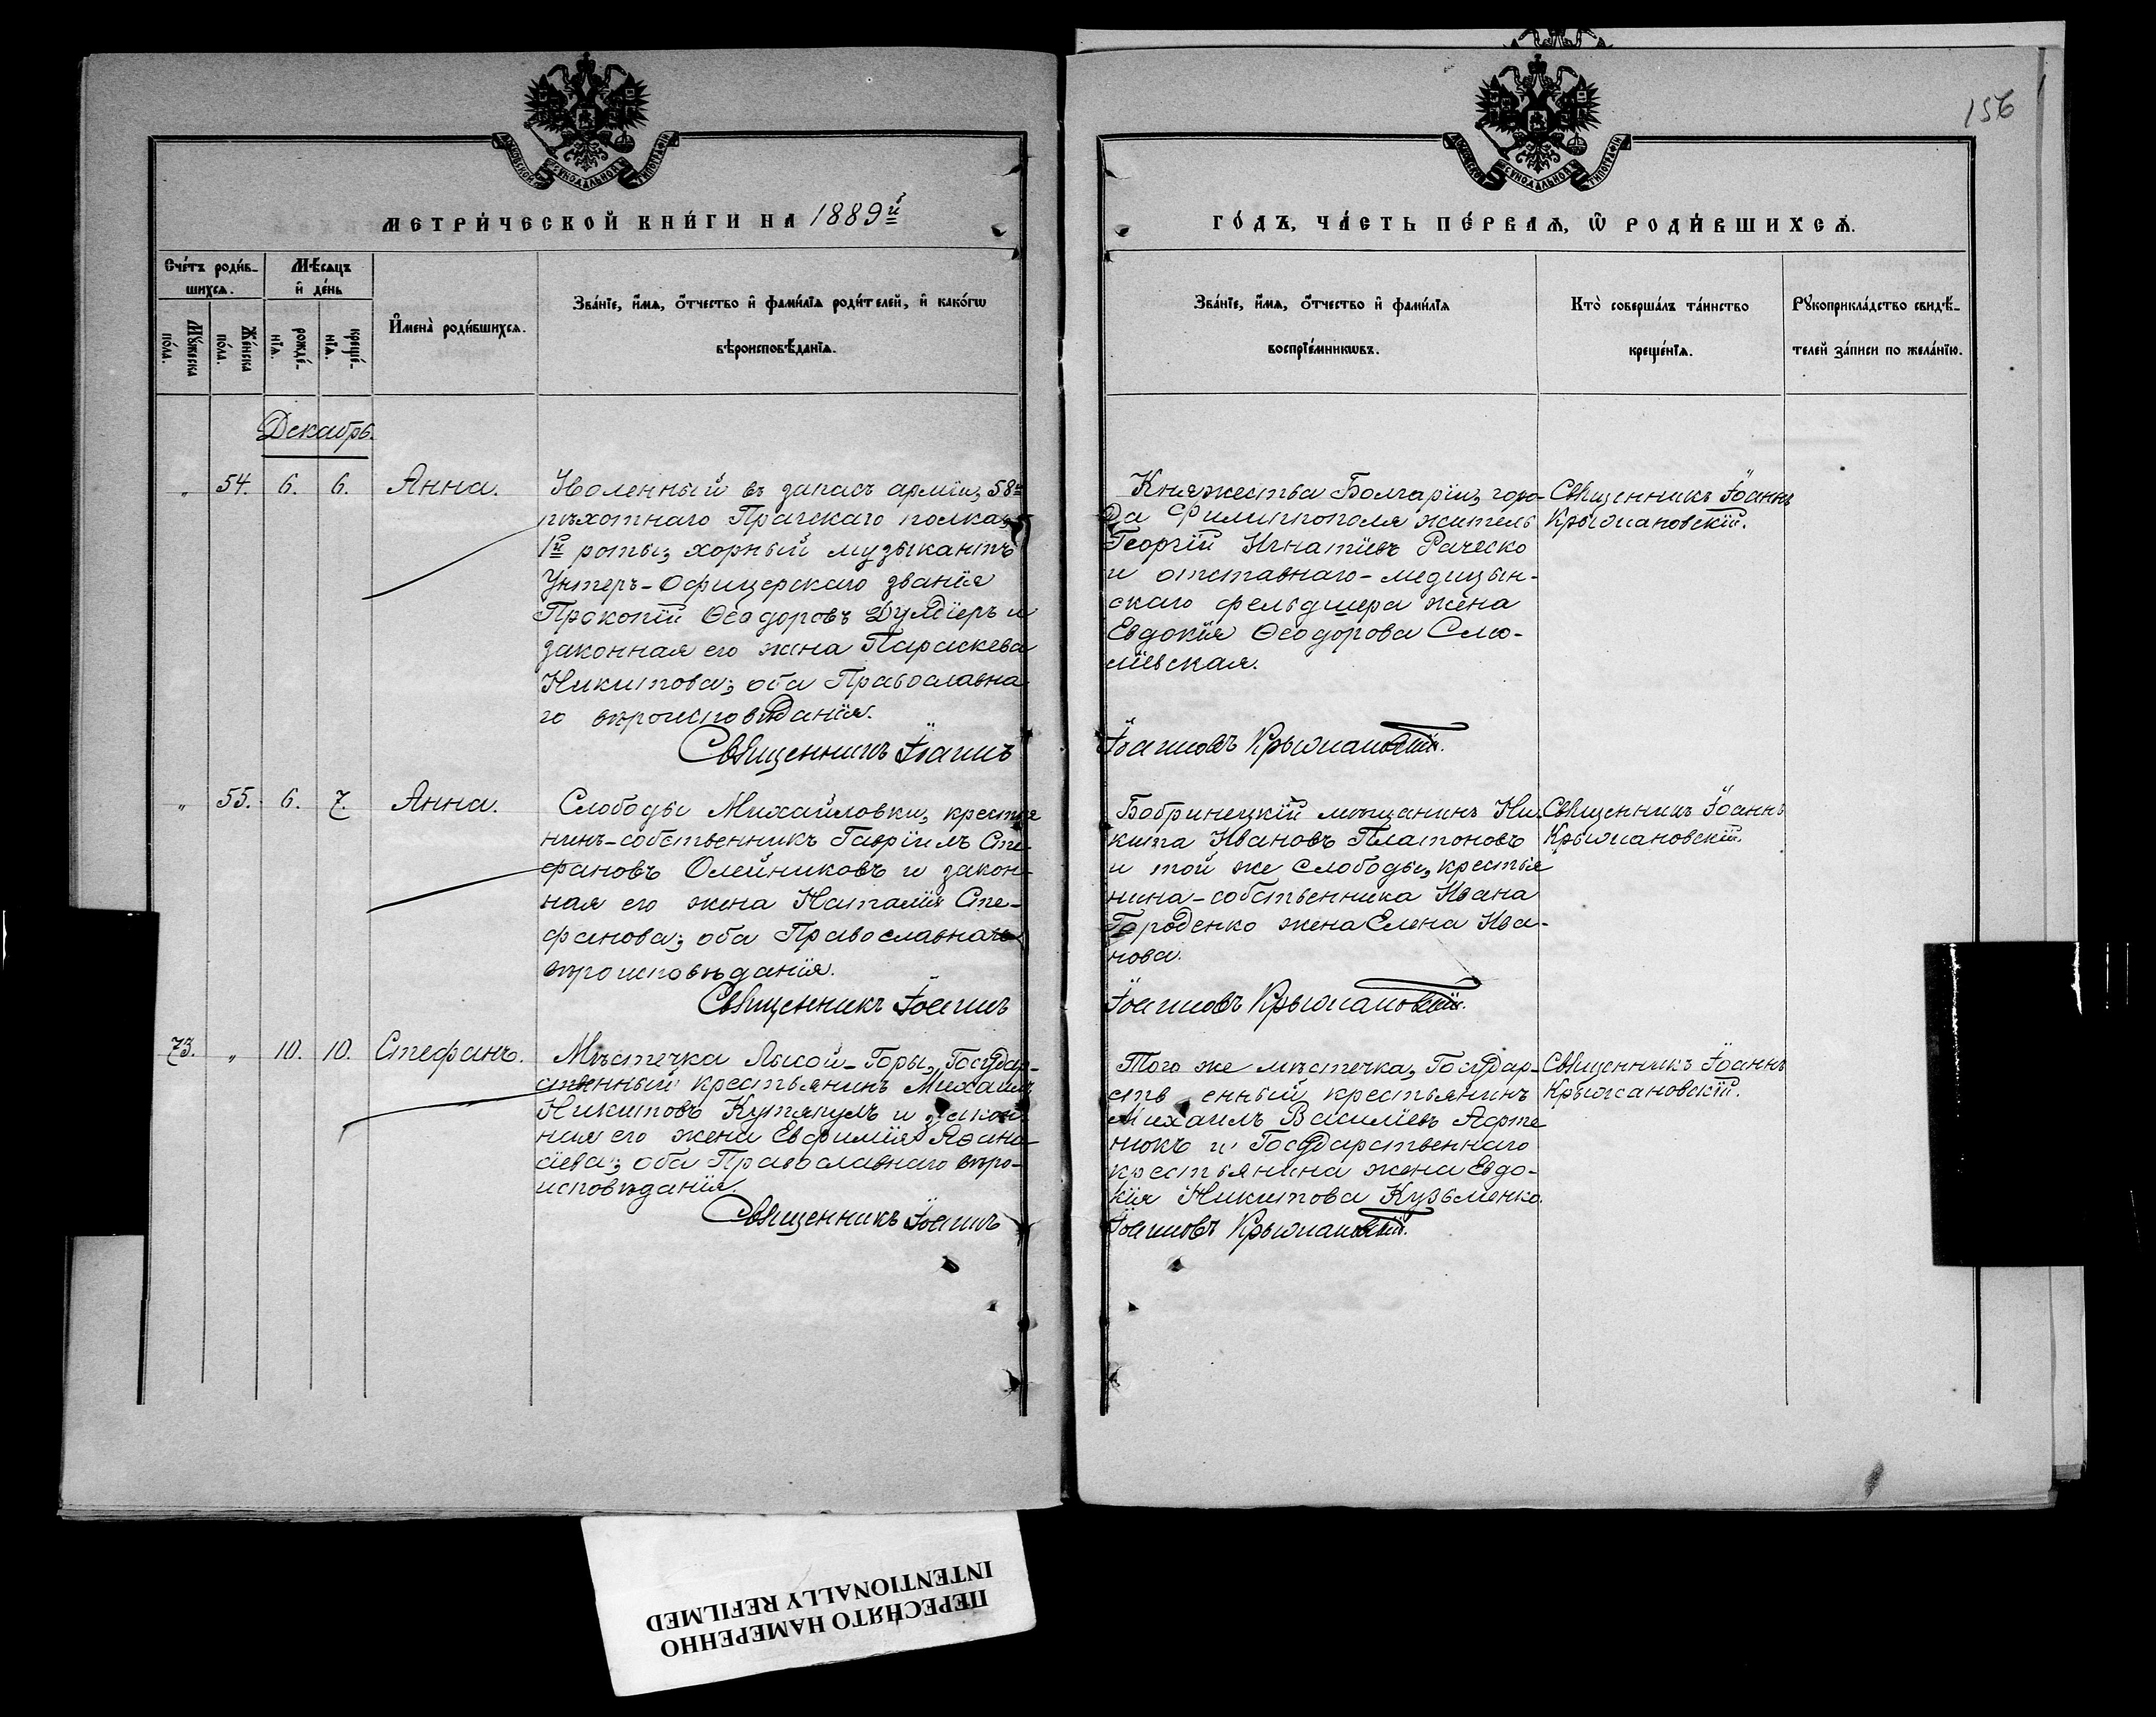 156
МОСКОВСКОЙ СѴНОДАЛЬНОЙ ТИПОГРАФІИ
МОСКОВСКОЙ СѴНОДАЛЬНОЙ ТИПОГРАФІИ
МЕТРИ́ЧЕСКОЙ КНИ́ГИ НА 1889й
ГО́ДЪ, ЧА́СТЬ ПЕ́РВАѦ, Ѡ РОДИ́ВШИХСѦ.
Сче́тъ роди́в-
шихсѧ.
Мꙋ́жеска
по́ла.
Же́нска
по́ла.
Мѣ́сѧцъ
и҆ де́нь
рожде́-
нїѧ.
креще́-
нїѧ.
И҆мена̀ роди́вшихсѧ.
Зва́нїе, и҆́мѧ, ѻ҆́тчество и҆ фами́лїѧ роди́телей, и҆ како́гѡ
вѣроисповѣ́данїѧ.
Зва́нїе, и҆́мѧ, ѻ҆́тчество и҆ фами́лїѧ
воспрїе́мникѡвъ.
Кто̀ соверша́лъ та́инство
креще́нїѧ.
Рꙋкоприкла́дство свидѣ́-
телей за́писи по жела́нїю.
Декабрь.
„ 54. 6. 6. Анна.
Уволенный въ запасъ арміи, 58го
пѣхотнаго Прагскаго полка,
1й роты, хорный музыкантъ
Унтеръ-Офицерскаго званія
Прокопій Ѳеодоровъ Дулдіеръ и
законная его жена Параскева
Никитова; оба Православна-
го вѣроисповѣданія.
Священникъ Іоаннъ
Княжества Болгаріи, горо-
да Филиппополя житель
Георгій Игнатіевъ Раческо
и отставнаго-медицын-
скаго фельдшера жена
Евдокія Ѳеодорова Смо-
лїевская.
Іоанновъ Крыжановскій.
Священникъ Іоаннъ
Крыжановскій.
„ 55. 6. 7. Анна.
Слободы Михайловки, крестья
нинъ-собственникъ Гавріилъ Сте-
фановъ Олейниковъ и закон-
ная его жена Наталія Сте-
фанова; оба Православнаго
вѣроисповѣданія.
Священникъ Іоаннъ
Бобринецкій мѣщанинъ Ни-
кита Ивановъ Платоновъ
и той же слободы, крестья
нина-собственника Ивана
Городенко жена Елена Ива-
нова.
Іоанновъ Крыжановскій.
Священникъ Іоаннъ
Крыжановскій.
73. „ 10. 10. Стефанъ.
Мѣстечка Лысой-Горы, Государ-
ственный крестьянинъ Михаилъ
Никитовъ Кутяпулъ и закон-
ная его жена Евфимія Аѳана-
сіева; оба Православнаго вѣро-
исповѣданія.
Священникъ Іоаннъ
Того же мѣстечка, Государ-
ств енный крестьянинъ
Михаилъ Василіевъ Афте
нюкъ и Государственнаго
крестьянина жена Евдо-
кія Никитова Кузьменко.
Іоанновъ Крыжановскій.
Священникъ Іоаннъ
Крыжановскій.
ПЕРЕСНЯТО НАМЕРЕННО
INTENTIONALLY REFILMED